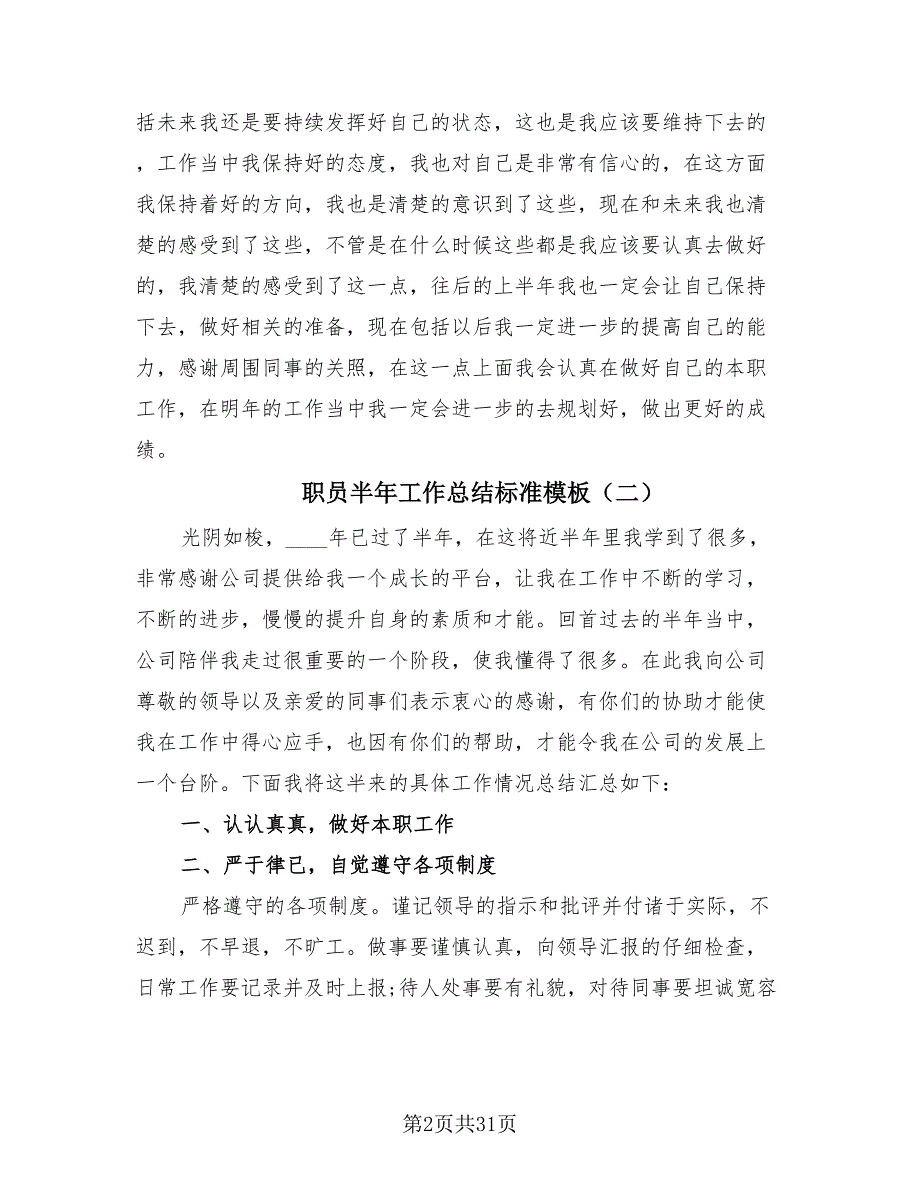 括未来我还是要持续发挥好自己的状态，这也是我应该要维持下去的
，工作当中我保持好的态度，我也对自己是非常有信心的，在这方面
我保持着好的方向，我也是清楚的意识到了这些，现在和未来我也清
楚的感受到了这些，不管是在什么时候这些都是我应该要认真去做好
的，我清楚的感受到了这一点，往后的上半年我也一定会让自己保持
下去，做好相关的准备，现在包括以后我一定进一步的提高自己的能
力，感谢周围同事的关照，在这一点上面我会认真在做好自己的本职
工作，在明年的工作当中我一定会进一步的去规划好，做出更好的成
绩。
职员半年工作总结标准模板（二）
光阴如梭，____年已过了半年，在这将近半年里我学到了很多，
非常感谢公司提供给我一个成长的平台，让我在工作中不断的学习，
不断的进步，慢慢的提升自身的素质和才能。回首过去的半年当中，
公司陪伴我走过很重要的一个阶段，使我懂得了很多。在此我向公司
尊敬的领导以及亲爱的同事们表示衷心的感谢，有你们的协助才能使
我在工作中得心应手，也因有你们的帮助，才能令我在公司的发展上
一个台阶。下面我将这半来的具体工作情况总结汇总如下：
一、认认真真，做好本职工作
二、严于律已，自觉遵守各项制度
严格遵守的各项制度。谨记领导的指示和批评并付诸于实际，不
迟到，不早退，不旷工。做事要谨慎认真，向领导汇报的仔细检查，
日常工作要记录并及时上报;待人处事要有礼貌，对待同事要坦诚宽容
第2页共31页